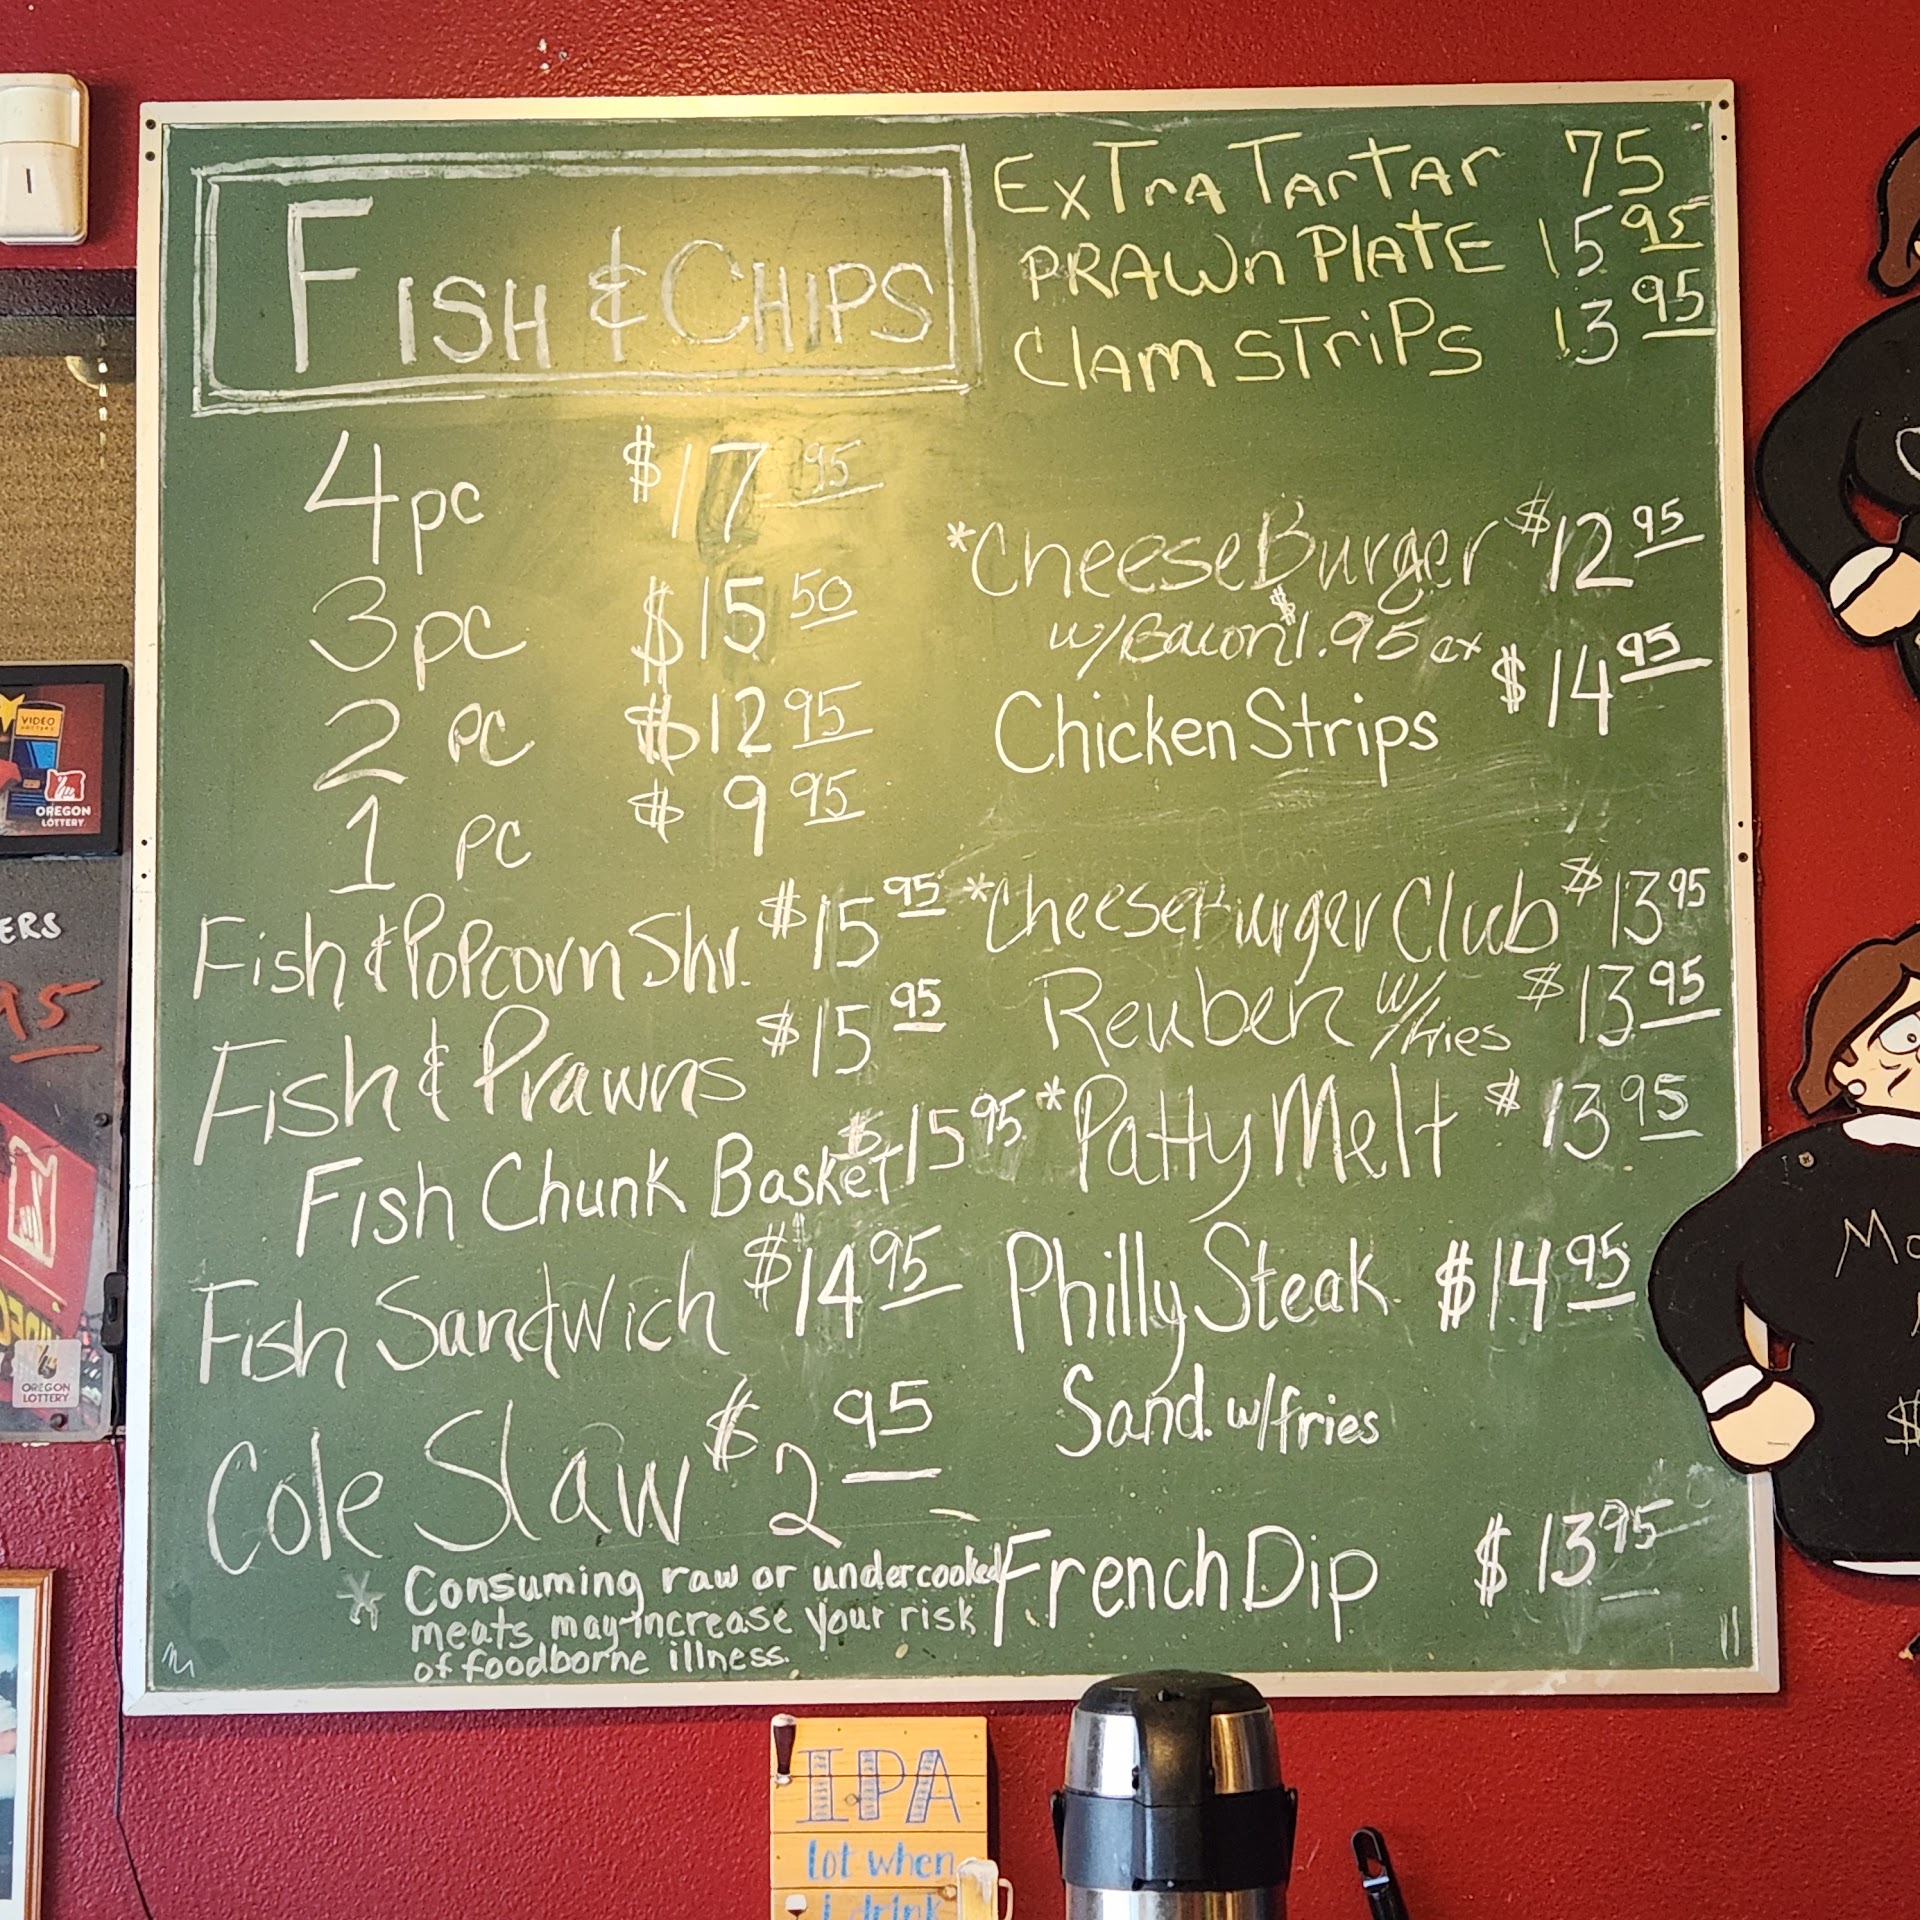 FISH & CHIPS
4 pc $17 95
3 pc $15 50
2 pc $12 95
1 pc $9 95
Fish & Popcorn Shr. $15 95
Fish & Prawns $15 95
Fish Chunk Basket $15 95
Fish Sandwich $14 95
Cole Slaw $2 95
* Consuming raw or undercooked
meats may increase your risk
of foodborne illness.
ExTrA TArTAr 75
PRAWn PlATE 15 95
ClAm STriPs 13 95
*CheeseBurger $12 95
w/Bacon $1.95 ex
Chicken Strips $14 95
*CheeseBurger Club $13 95
Reuben w/fries $13 95
*Patty Melt $13 95
Philly Steak $14 95
Sand. w/fries
French Dip $13 95
VIDEO
LOTTERY
OREGON
LOTTERY
ERS
95
OREGON
LOTTERY
Mo
$
IPA
lot when
I drink